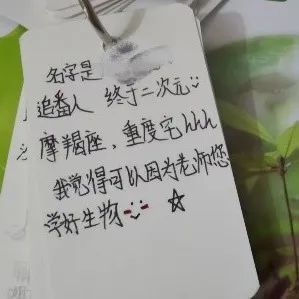 名字是
追番人 终于二次元
摩羯座，重度宅hhhh
我觉得可以因为老师您
学好生物